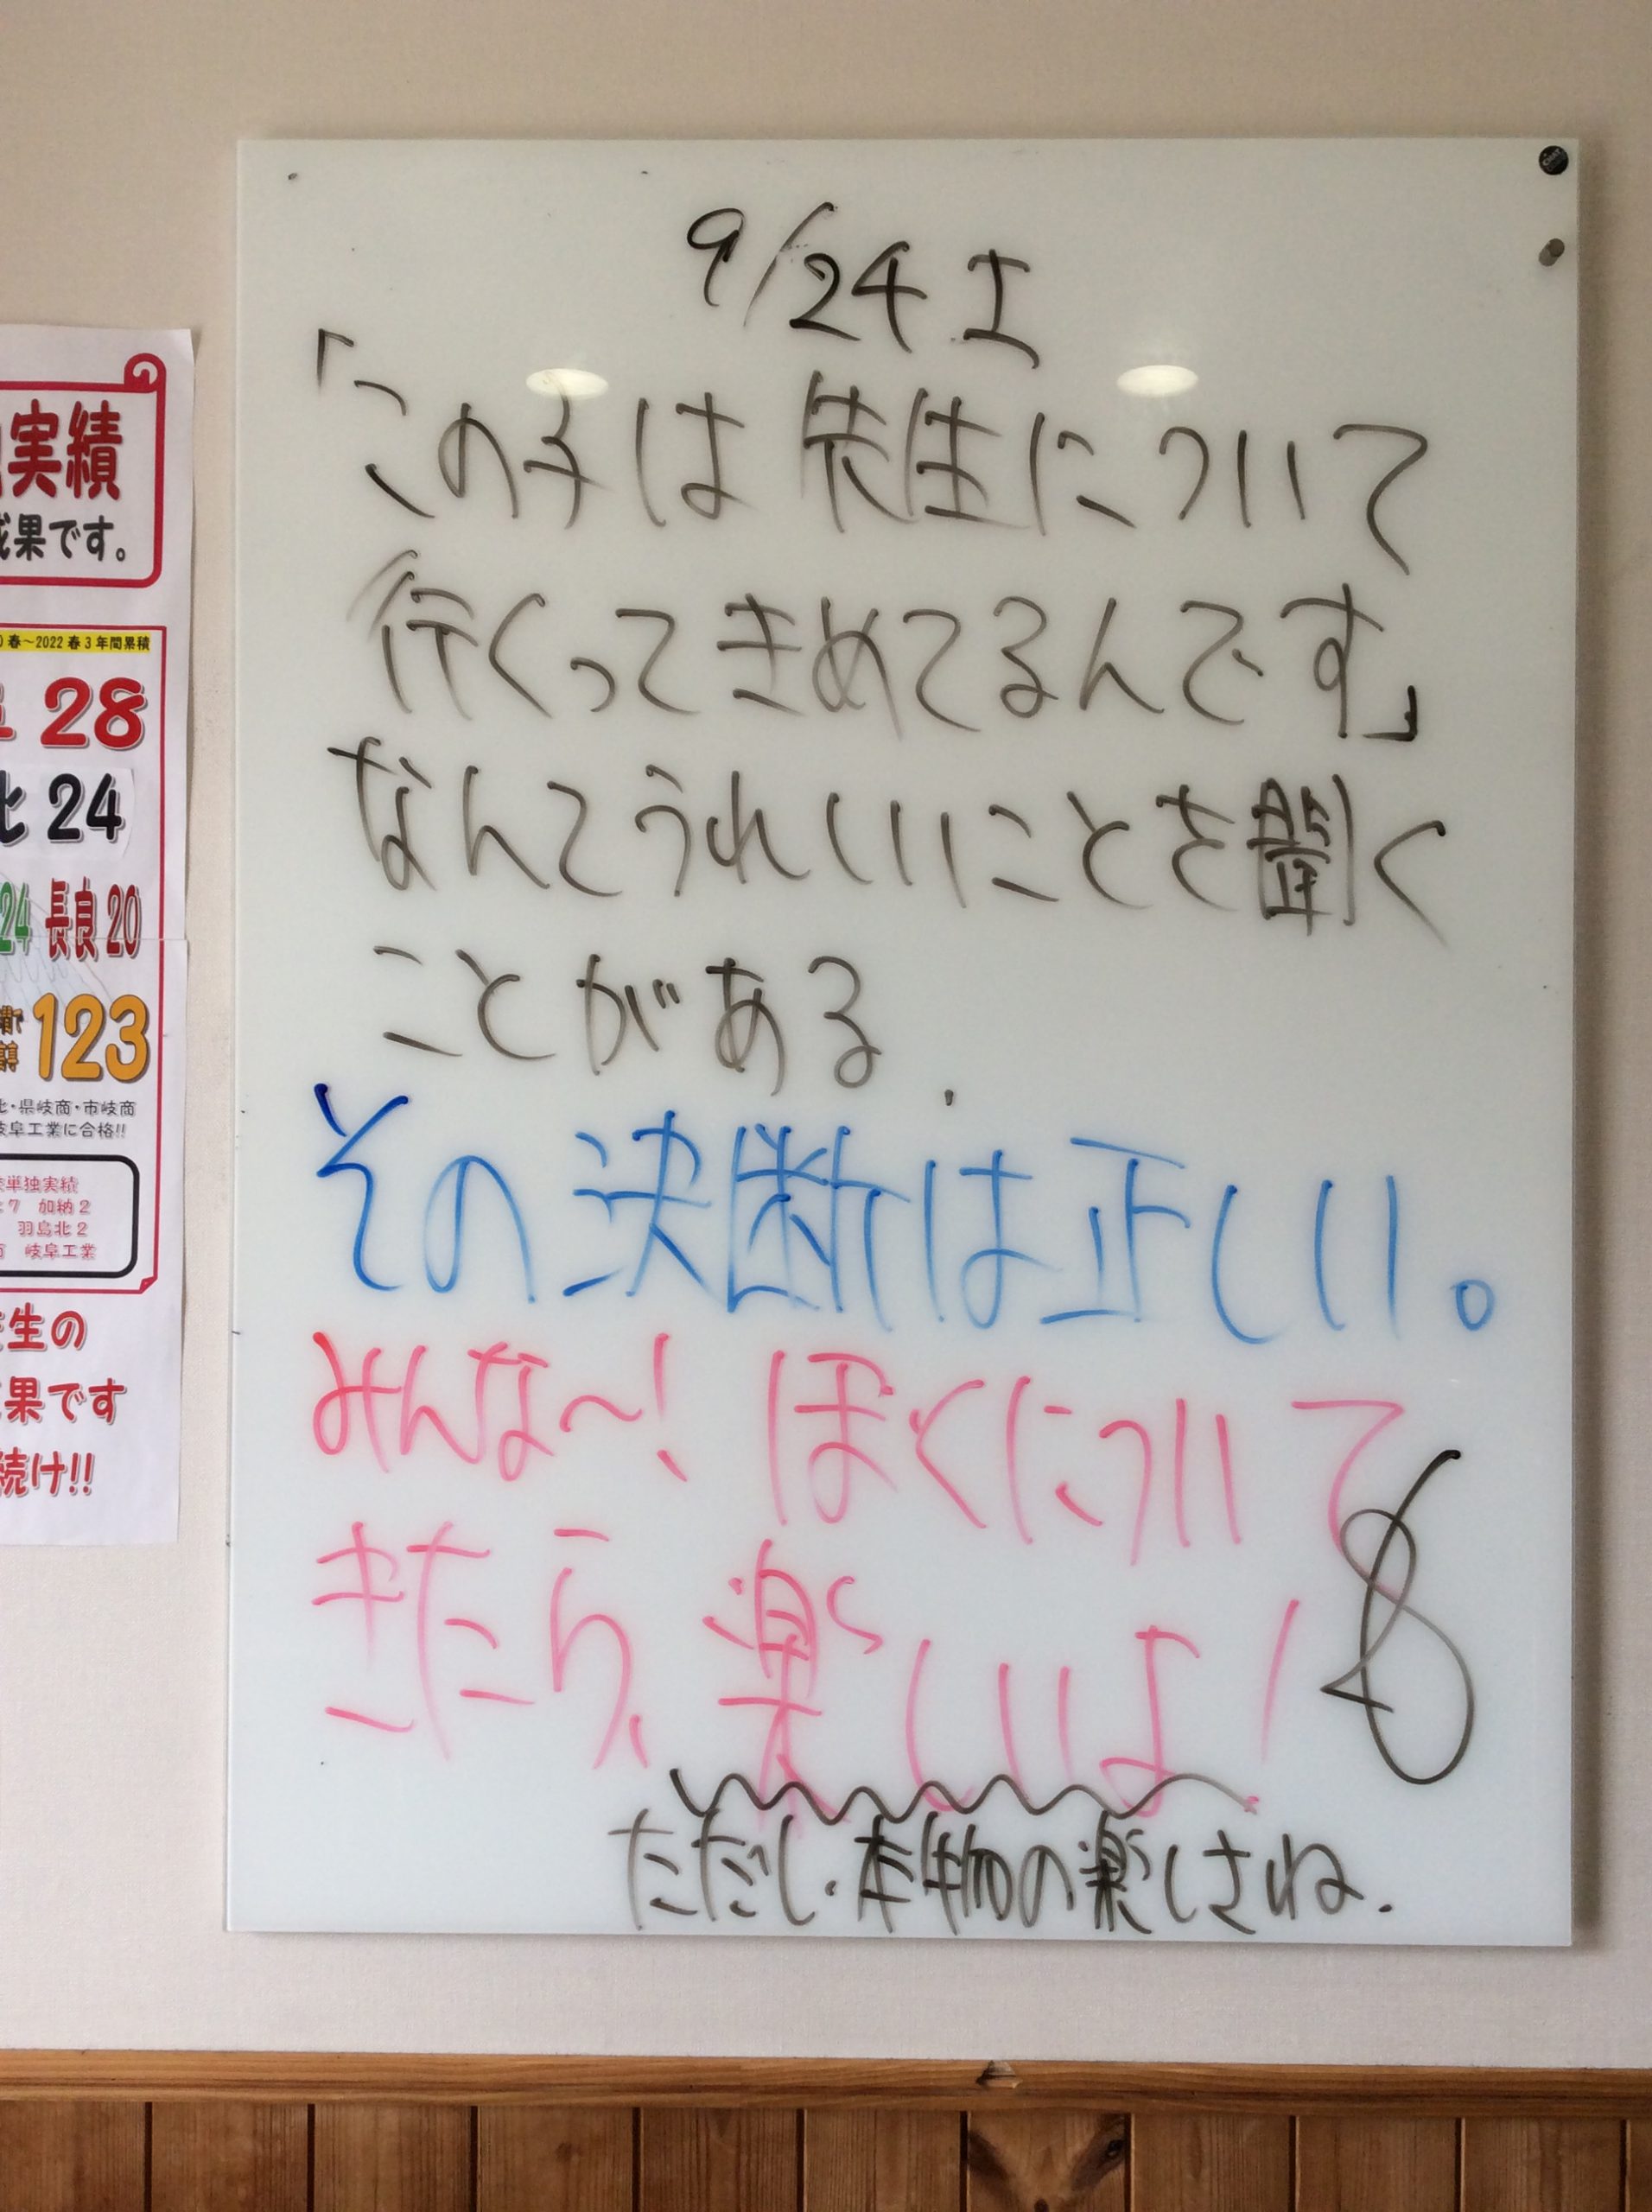 9/24 土
「この子は先生について
行くってきめてるんです」
なんてうれしいことを聞く
ことがある.
その決断は正しい。
みんな~! ぼくについて
きたら、楽しいよ!
ただし、本物の楽しさね.
実績
果です。
春~2022 春3年間累積
28
北 24
24 長良 20
123
北・県岐商・市岐商
岐阜工業に合格!!
単独実績
7 加納2
羽島北2
岐阜工業
生の
果です
続け!!